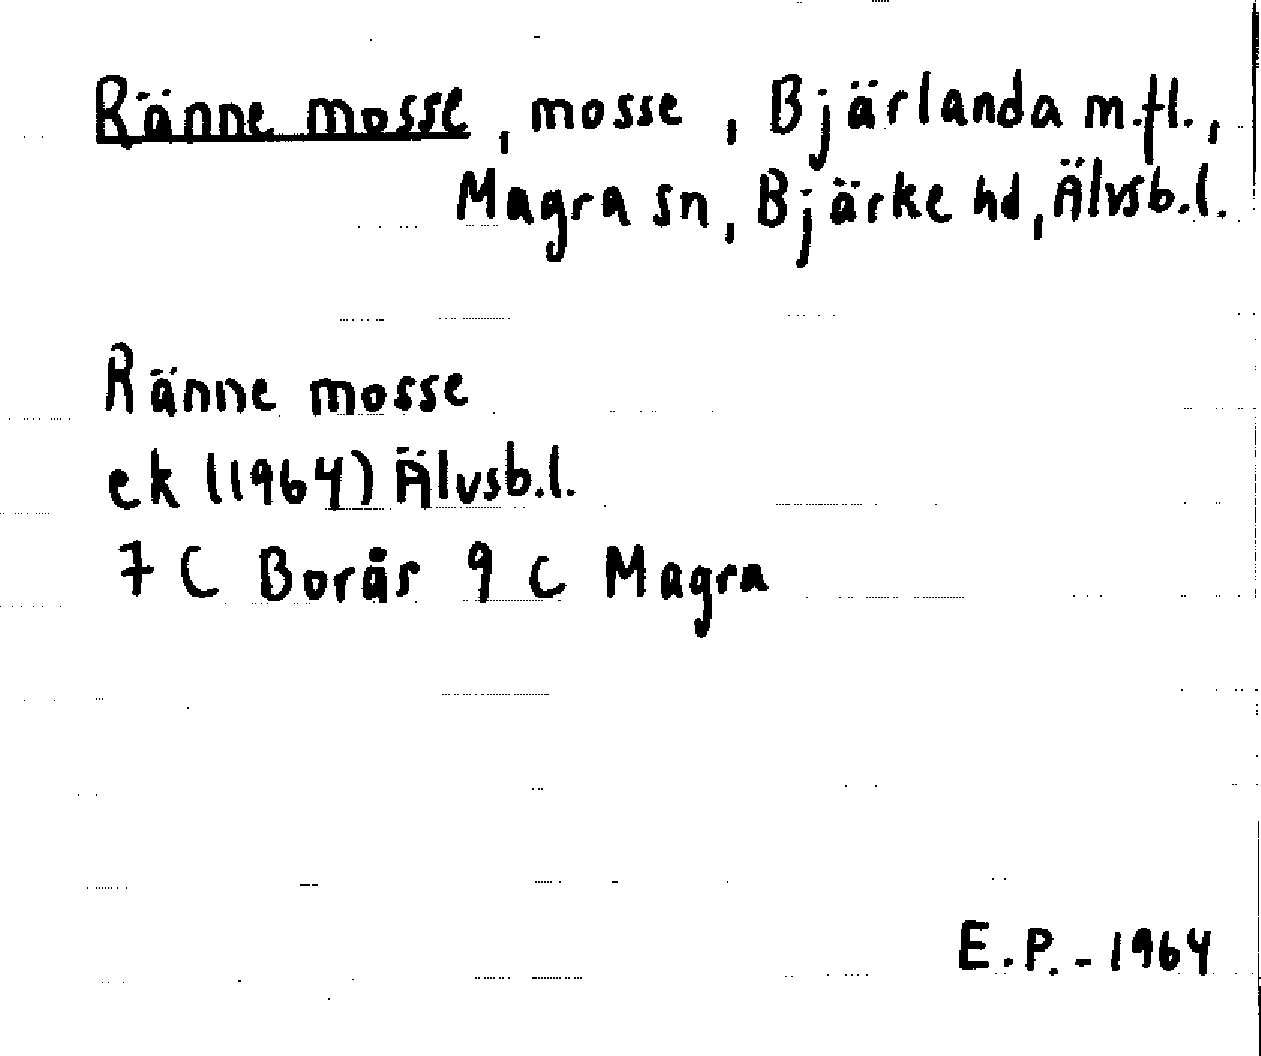 Ränne mosse, mosse, Bjärlanda m.fl.,
Magra sn, Bjärke hd, Älvsb.l.
Ränne mosse
ek (1964) Älvsb.l.
7 C Borås 9 c Magra
E.P. - 1964